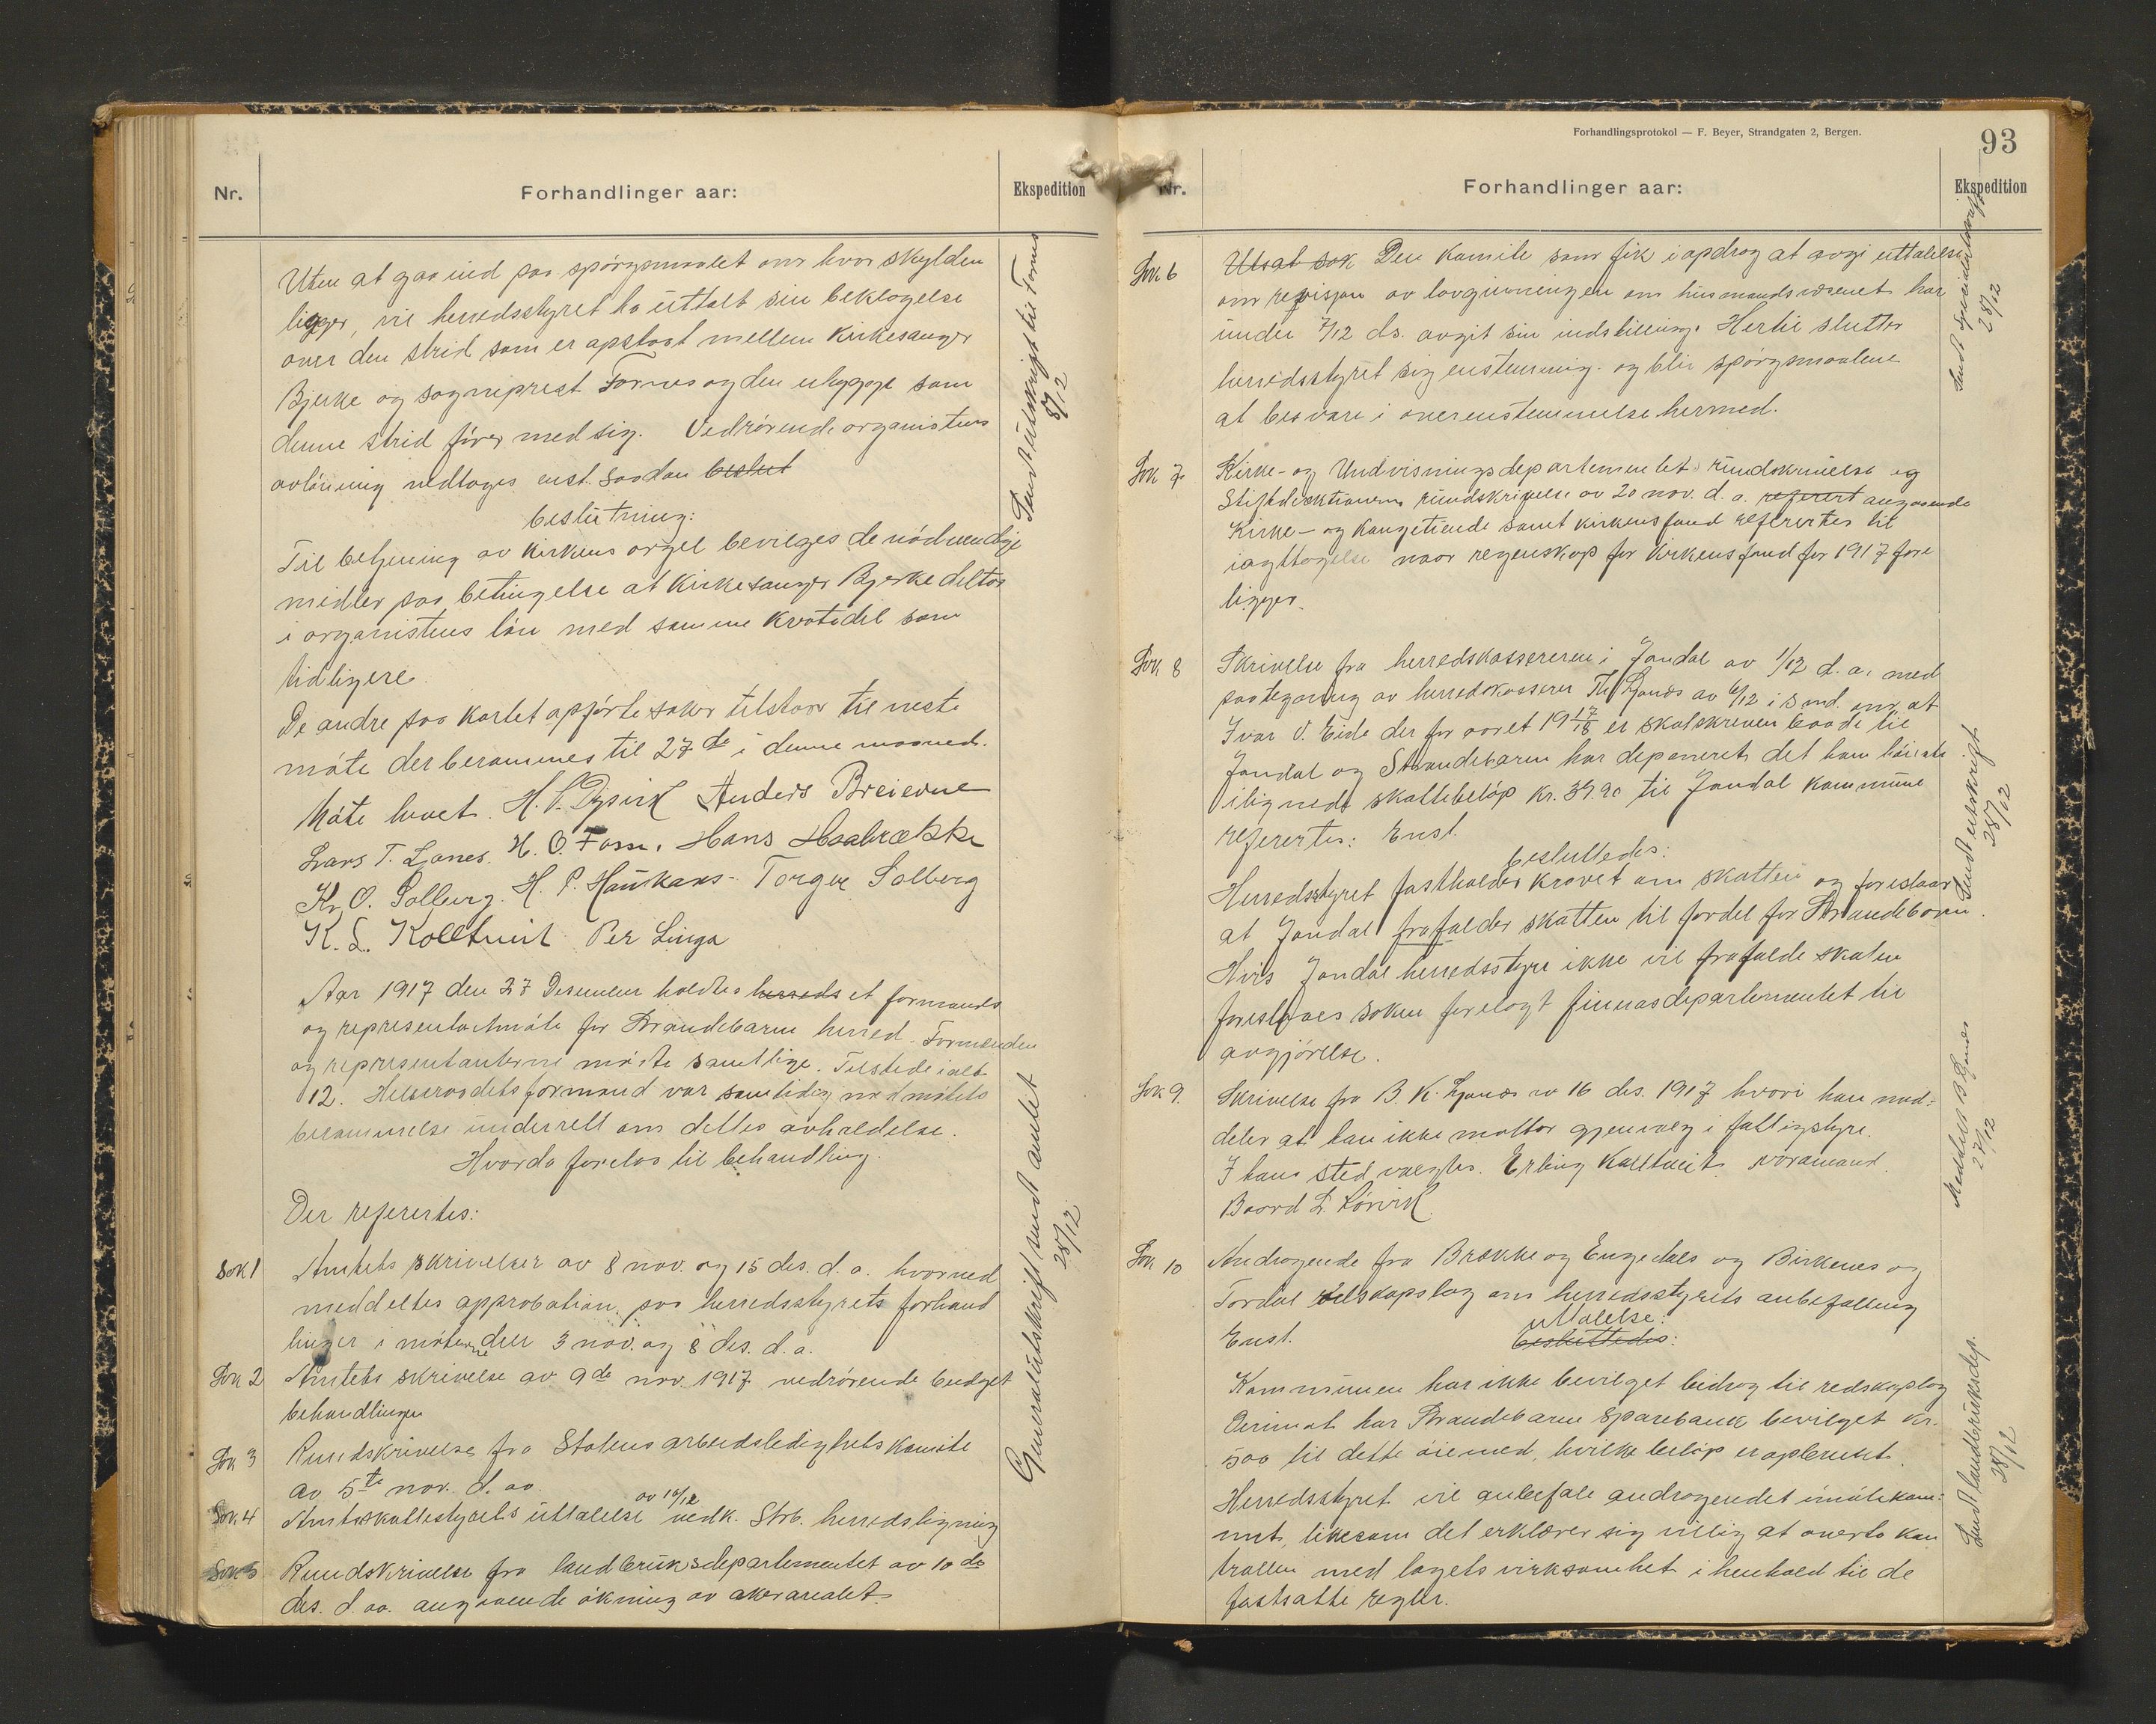 Nr.
Forhandlinger aar:
Ekspedition
Uten at gaa ind paa spørgsmaalet om hvor skylden
ligger, vil herredsstyret ha uttalt sin beklagelse
over den strid som er opstaat mellem kirkesanger
Bjerke og sogneprest Fornes og den uhygge som
denne strid fører med sig. Vedrørende organistens
avlønning vedtoges enst. saadan beslut
beslutning:
Til betjening av kirkens orgel bevilges de nødvendige
midler paa betingelse at kirkesanger Bjerke deltar
i organistens løn med samme kvotadel som
tidligere.
De andre paa kartet opførte saker utstaar til neste
møte der berammes til 27de i denne maaned.
Møte hævet. H. P. Dysvik Anders Breievne
Lars T. Ljones. H. O. Fosse. Hans Haabrække
Kr. O. Solberg. H. P. Haukaas Torger Solberg
K. L. Kolltveit Per Linga
Sendt utskrift til Fornes
8/12
Aar 1917 den 27 Desember holdtes herreds et formands
og representantmøte for Strandebarm herred. Formænden
og representanterne møtte samtlige. Tilstede ialt
12. Helseraadets formand var samtidig med møtets
berammelse underrett om dettes avholdelse.
Hvorda forelaa til behandling.
Der refertes:
Sak 1 Amtets skrivelser av 8 nov. og 15 des. d. a. hvorved
meddeltes approbation paa herredsstyrets forhand
linger i møterne den 3 nov. og 8 des. d. a.
Sak 2 Amtets skrivelse av 9de nov. 1917 vedrørende budget
behandlingen
Sak 3 Rundskrivelse fra Statens arbeidsledighets komite
av 5te nov. d. aa.
Sak 4 Amtsskattestyrets uttalelse av 10/12 vedk. Strb. herredsligning
Sak 5 Rundskrivelse fra landbruksdepartementet av 10de
des. d. aa. angaaende økning av akerarealet.
Generalutskrift sendt amtet
28/12
Forhandlingsprotokol — F. Beyer, Strandgaten 2, Bergen.
93
Nr.
Forhandlinger aar:
Ekspedition
Sak 6 Utsat sak Den komite som fik i opdrag at avgi uttalelse
om revisjon av lovgivningen om husmandsvæsenet har
under 7/12 ds. avgit sin indstilling. Hertil slutter
herredsstyret sig enstemmig og blir spørgsmaalene
at besvare i overenstemmelse hermed.
28/12
Sak 7 Kirke- og Undvisningsdepartementets rundskrivelse og
Stiftsdirektionens rundskrivelse av 20 nov. d. a. referert angaaende
Kirke- og Kongetiende samt kirkens fond refertes til
iagttagelse naar regnskap for kirkens fond for 1917 fore
ligger.
Sak 8 Skrivelse fra herredskassereren i Jondal av 1/12 d. a. med
paategning av herredskasserer Th. Ljones av 6/12 i s md. om at
Ivar O. Eide der for aaret 1917/18 er skatskreven baade til
Jondal og Strandebarm har deponeret det ham
ilignede skattebeløp kr. 39.90 til Jondal kommune
refertes: Enst.
besluttedes:
Herredsstyret fastholder kravet om skatten og foreslaar
at Jondal frafalder skatten til fordel for Strandebarm.
Hvis Jondal herredsstyre ikke vil frafalde skaten
foreslaaes saken forelagt finnasdepartementet til
avgjørelse.
Sendt utskrift
28/12
Sak 9. Skrivelse fra B. K. Ljones av 16 des. 1917 hvori han med-
deler at han ikke mottar gjenvalg i fattigstyre.
I hans sted valgtes. Erling Kolltveit varamand.
Baard L. Lørvik.
Meddelt B Ljones
27/12
Sak 10 Andragende fra Brække og Engedals og Birkenes og
Tordal redskapslag om herredsstyrets anbefalling
Enst. uttalelse:
besluttedes:
Kommunen har ikke bevilget bidrag til redskapslag
Derimot har Strandebarm sparebank bevilget kr.
500 til dette øiemed, hvilke beløp er opbrukt.
Herredsstyret vil anbefale andragendet imøtekom-
met, likesom det erklærer sig villig at overta kon
trollen med lagets virksomhet i henhold til de
fastsatte regler.
Sendt landbruksdep.
28/12